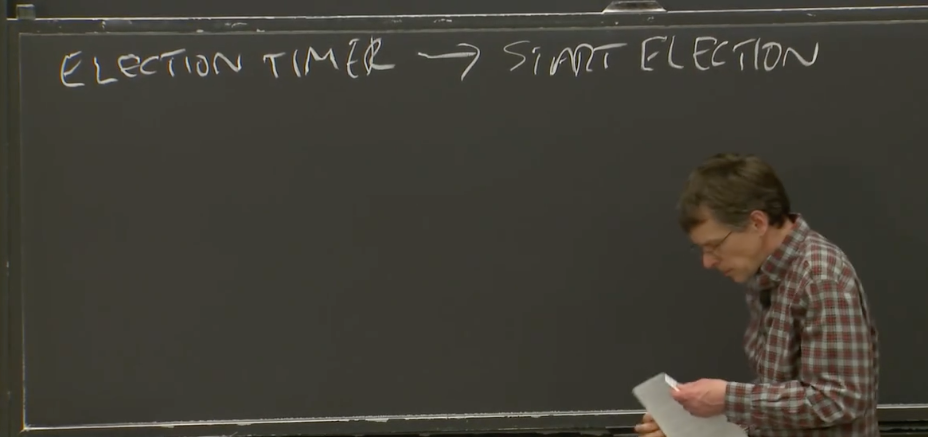 ELECTION TIMER → START ELECTION